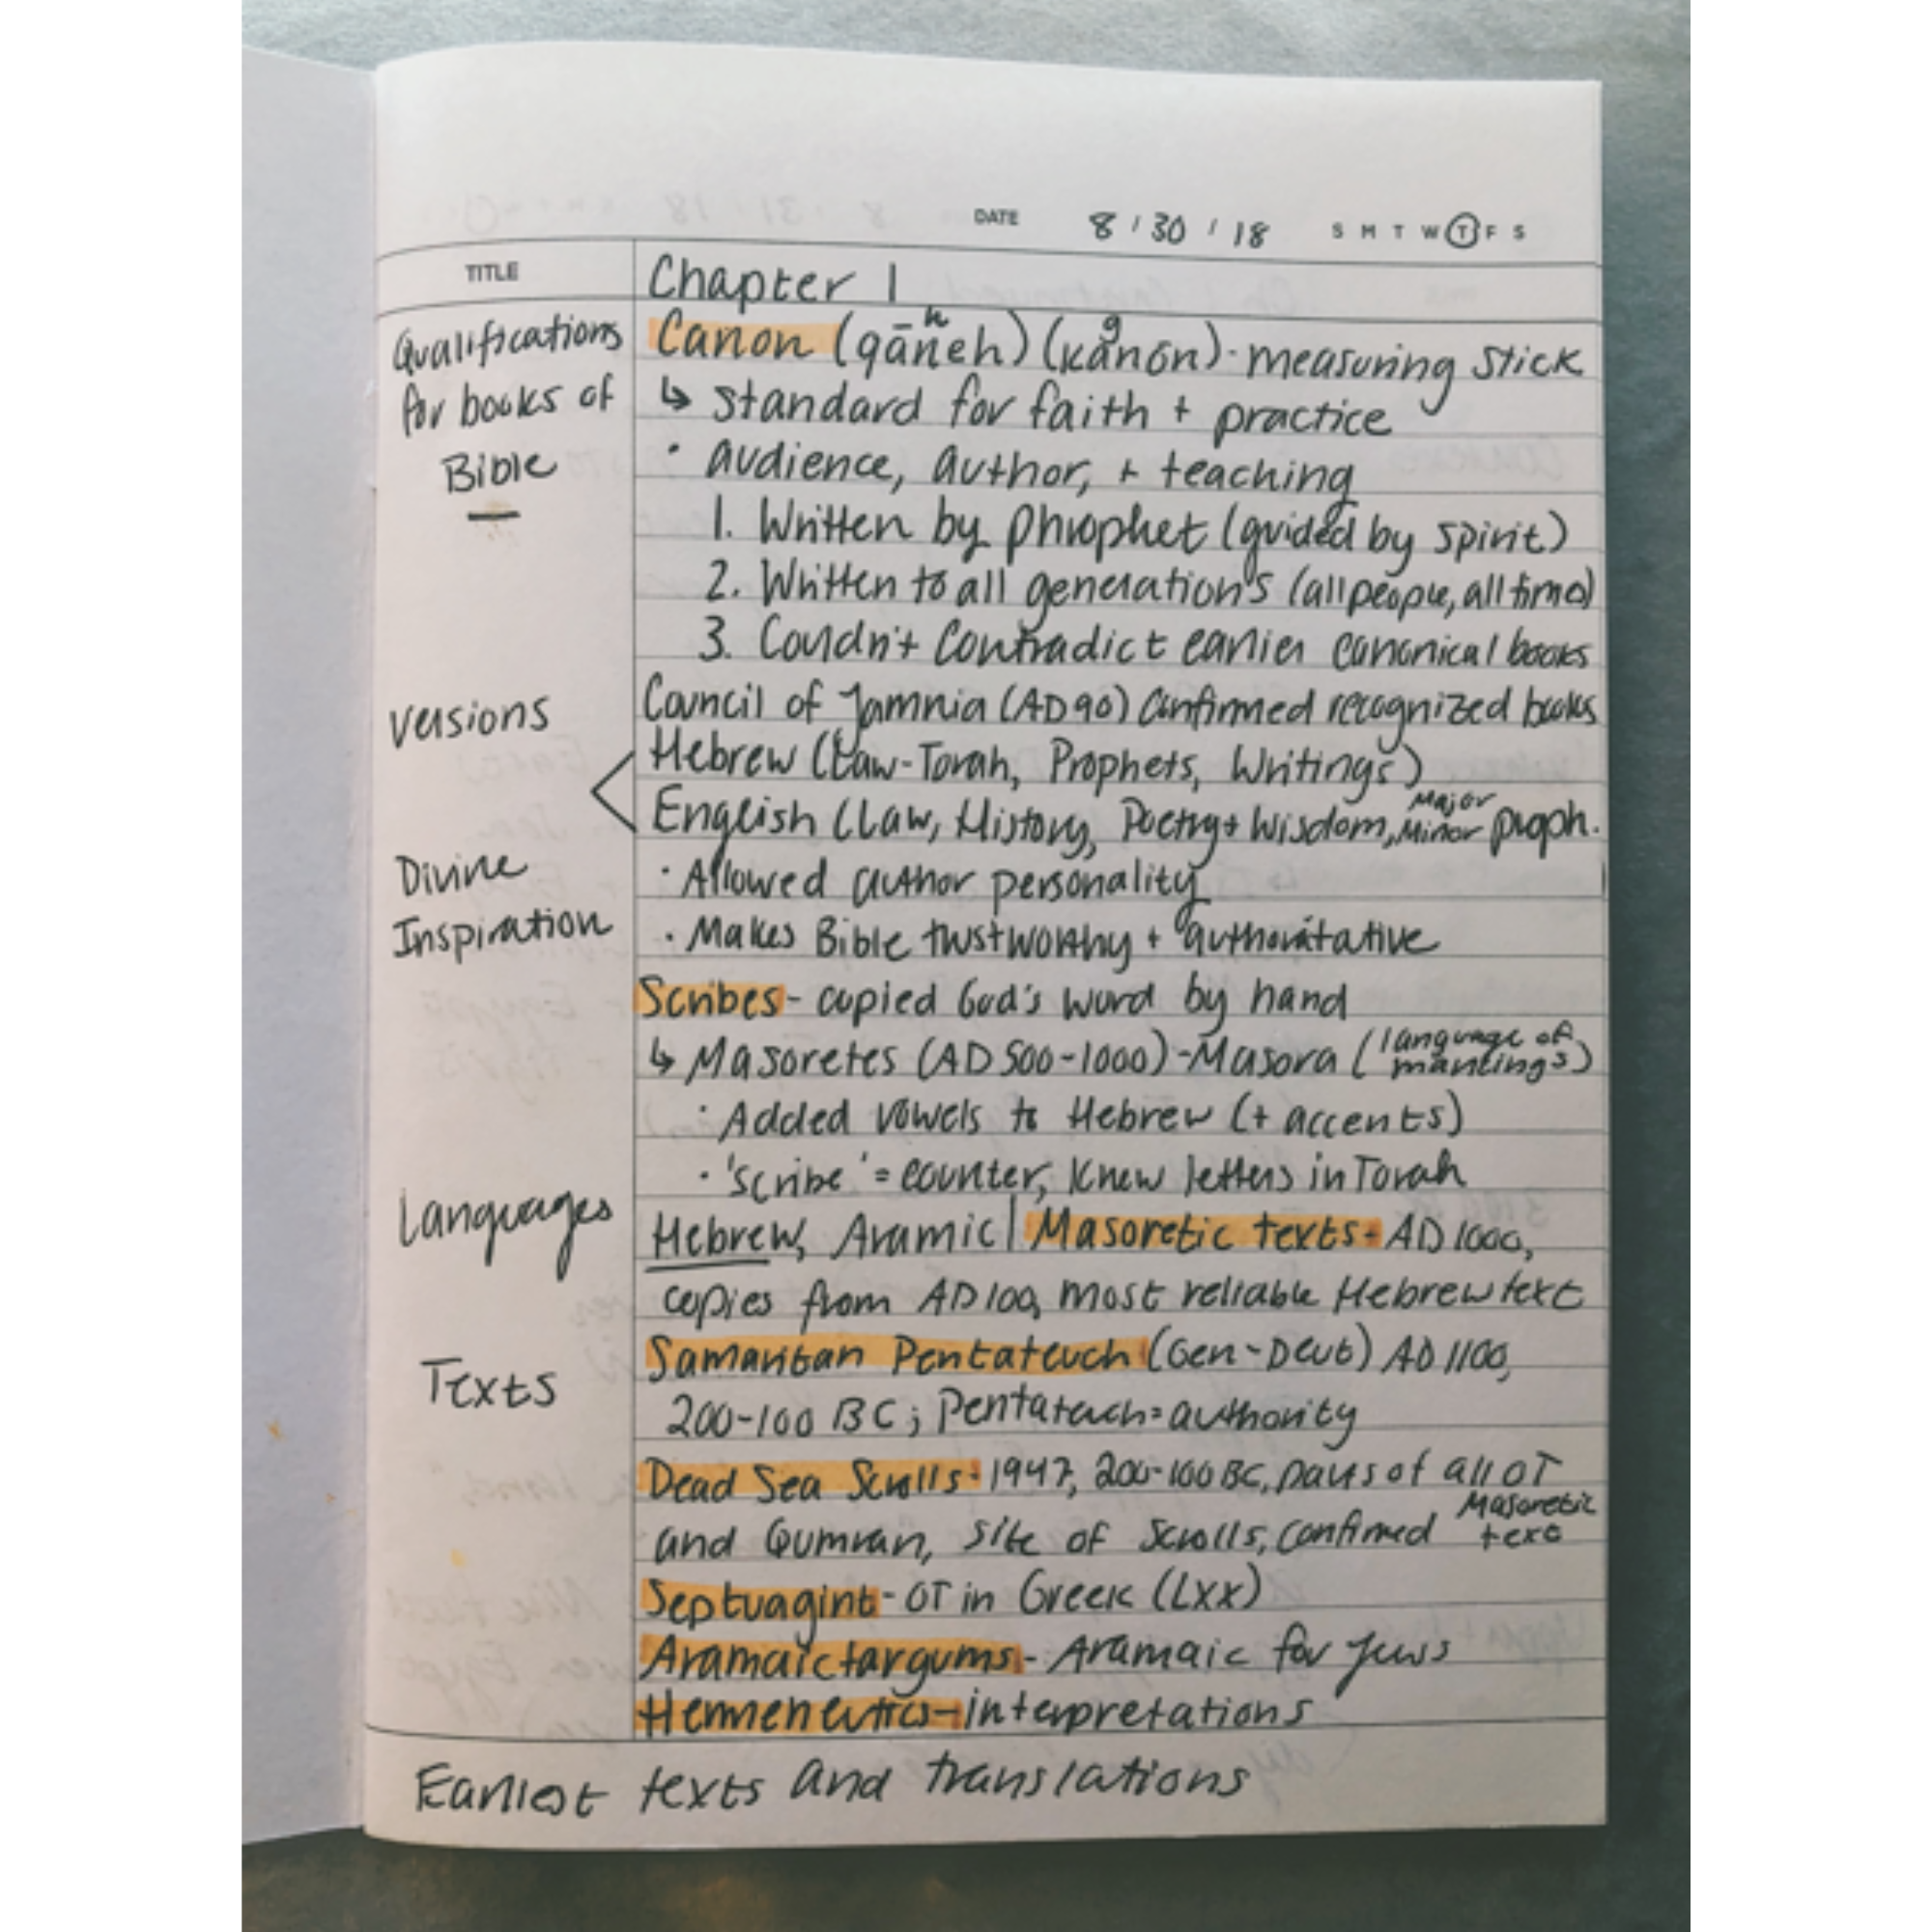 DATE 8 / 30 / 18 S M T W T F S
TITLE Chapter 1
Qualifications for books of Bible
Canon (qāneh) h (kanōn) g · measuring stick
↳ standard for faith + practice
· audience, author, + teaching
1. Written by prophet (guided by spirit)
2. Written to all generations (all people, all time)
3. Couldn't contradict earlier canonical books
Versions
Council of Jamnia (AD 90) confirmed recognized books
Hebrew (Law-Torah, Prophets, Writings)
English (Law, History, Poetry + Wisdom, Major Minor proph.
Divine Inspiration
· Allowed author personality
· Makes Bible trustworthy + authoritative
Scribes - copied God's word by hand
↳ Masoretes (AD 500-1000) - Masora (language of markings)
· Added vowels to Hebrew (+ accents)
· 'scribe' = counter, knew letters in Torah
Languages
Hebrew, Aramic | Masoretic texts - AD 1000,
copies from AD 100, most reliable Hebrew text
Texts
Samaritan Pentateuch (Gen-Deut) AD 1100,
200-100 BC; Pentateuch = authority
Dead Sea Scrolls - 1947, 200-100 BC, parts of all OT
and Qumran, site of scrolls, confirmed Masoretic text
Septuagint - OT in Greek (LXX)
Aramaic targums - Aramaic for Jews
Hermeneutics - interpretations
Earliest texts and translations